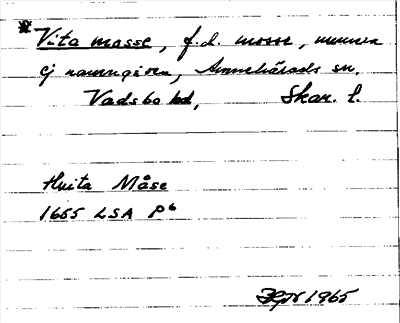 * Vita masse, f.d. mosse, numera
ej namngiven, Amnehärads sn,
Vadsbo hd, Skar. l.
Huita Måse
1655 LSA P6
1965